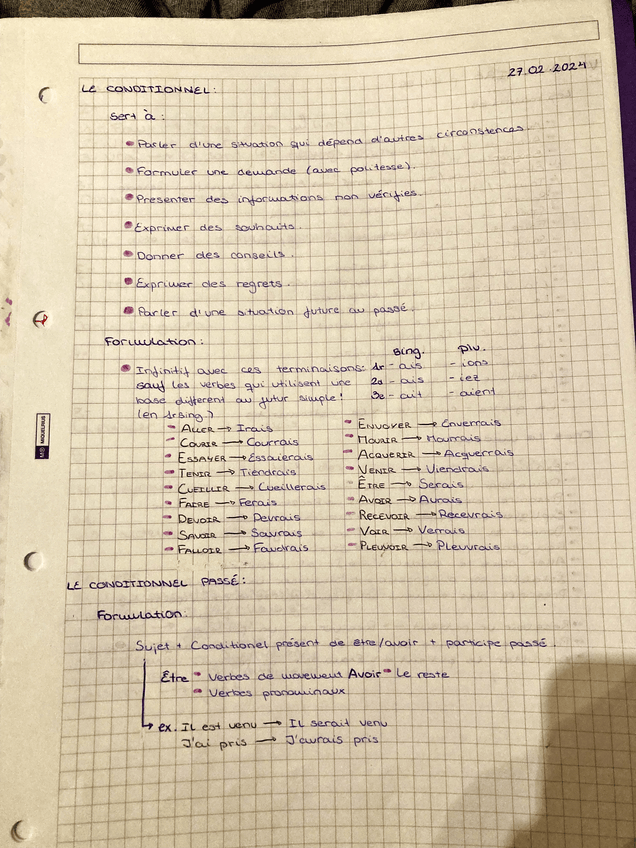 27.02.2024
LE CONDITIONNEL:
Sert à:
Parler d'une situation qui dépend d'autres circonstences.
Formuler une demande (avec politesse).
Présenter des informations non vérifies.
Exprimer des souhaits.
Donner des conseils.
Exprimer des regrets.
Parler d'une situation future au passé.
Formulation:
sing. plu.
Infinitif avec ces terminaisons: 1r - ais - ions
sauf les verbes qui utilisent une 2a - ais - iez
base different au futur simple! 3e - ait - aient
(en 1rsing)
ALLER → Irais
ENVOYER → Enverrais
COURIR → Courrais
MOURIR → Mourrais
ESSAYER → Essaierais
ACQUERIR → Acquerrais
TENIR → Tiendrais
VENIR → Viendrais
CUEILLIR → Cueillerais
ÊTRE → Serais
FAIRE → Ferais
AVOIR → Aurais
DEVOIR → Devrais
RECEVOIR → Recevrais
SAVOIR → Saurais
VOIR → Verrais
FALLOIR → Faudrais
PLEUVOIR → Pleuvrais
MIQUELRIUS
LE CONDITIONNEL PASSÉ:
Formulation:
Sujet + Conditionel présent de être/avoir + participe passé.
Être Verbes de mouvement Avoir Le reste
Verbes pronominaux
ex. Il est venu → Il serait venu
J'ai pris → J'aurais pris